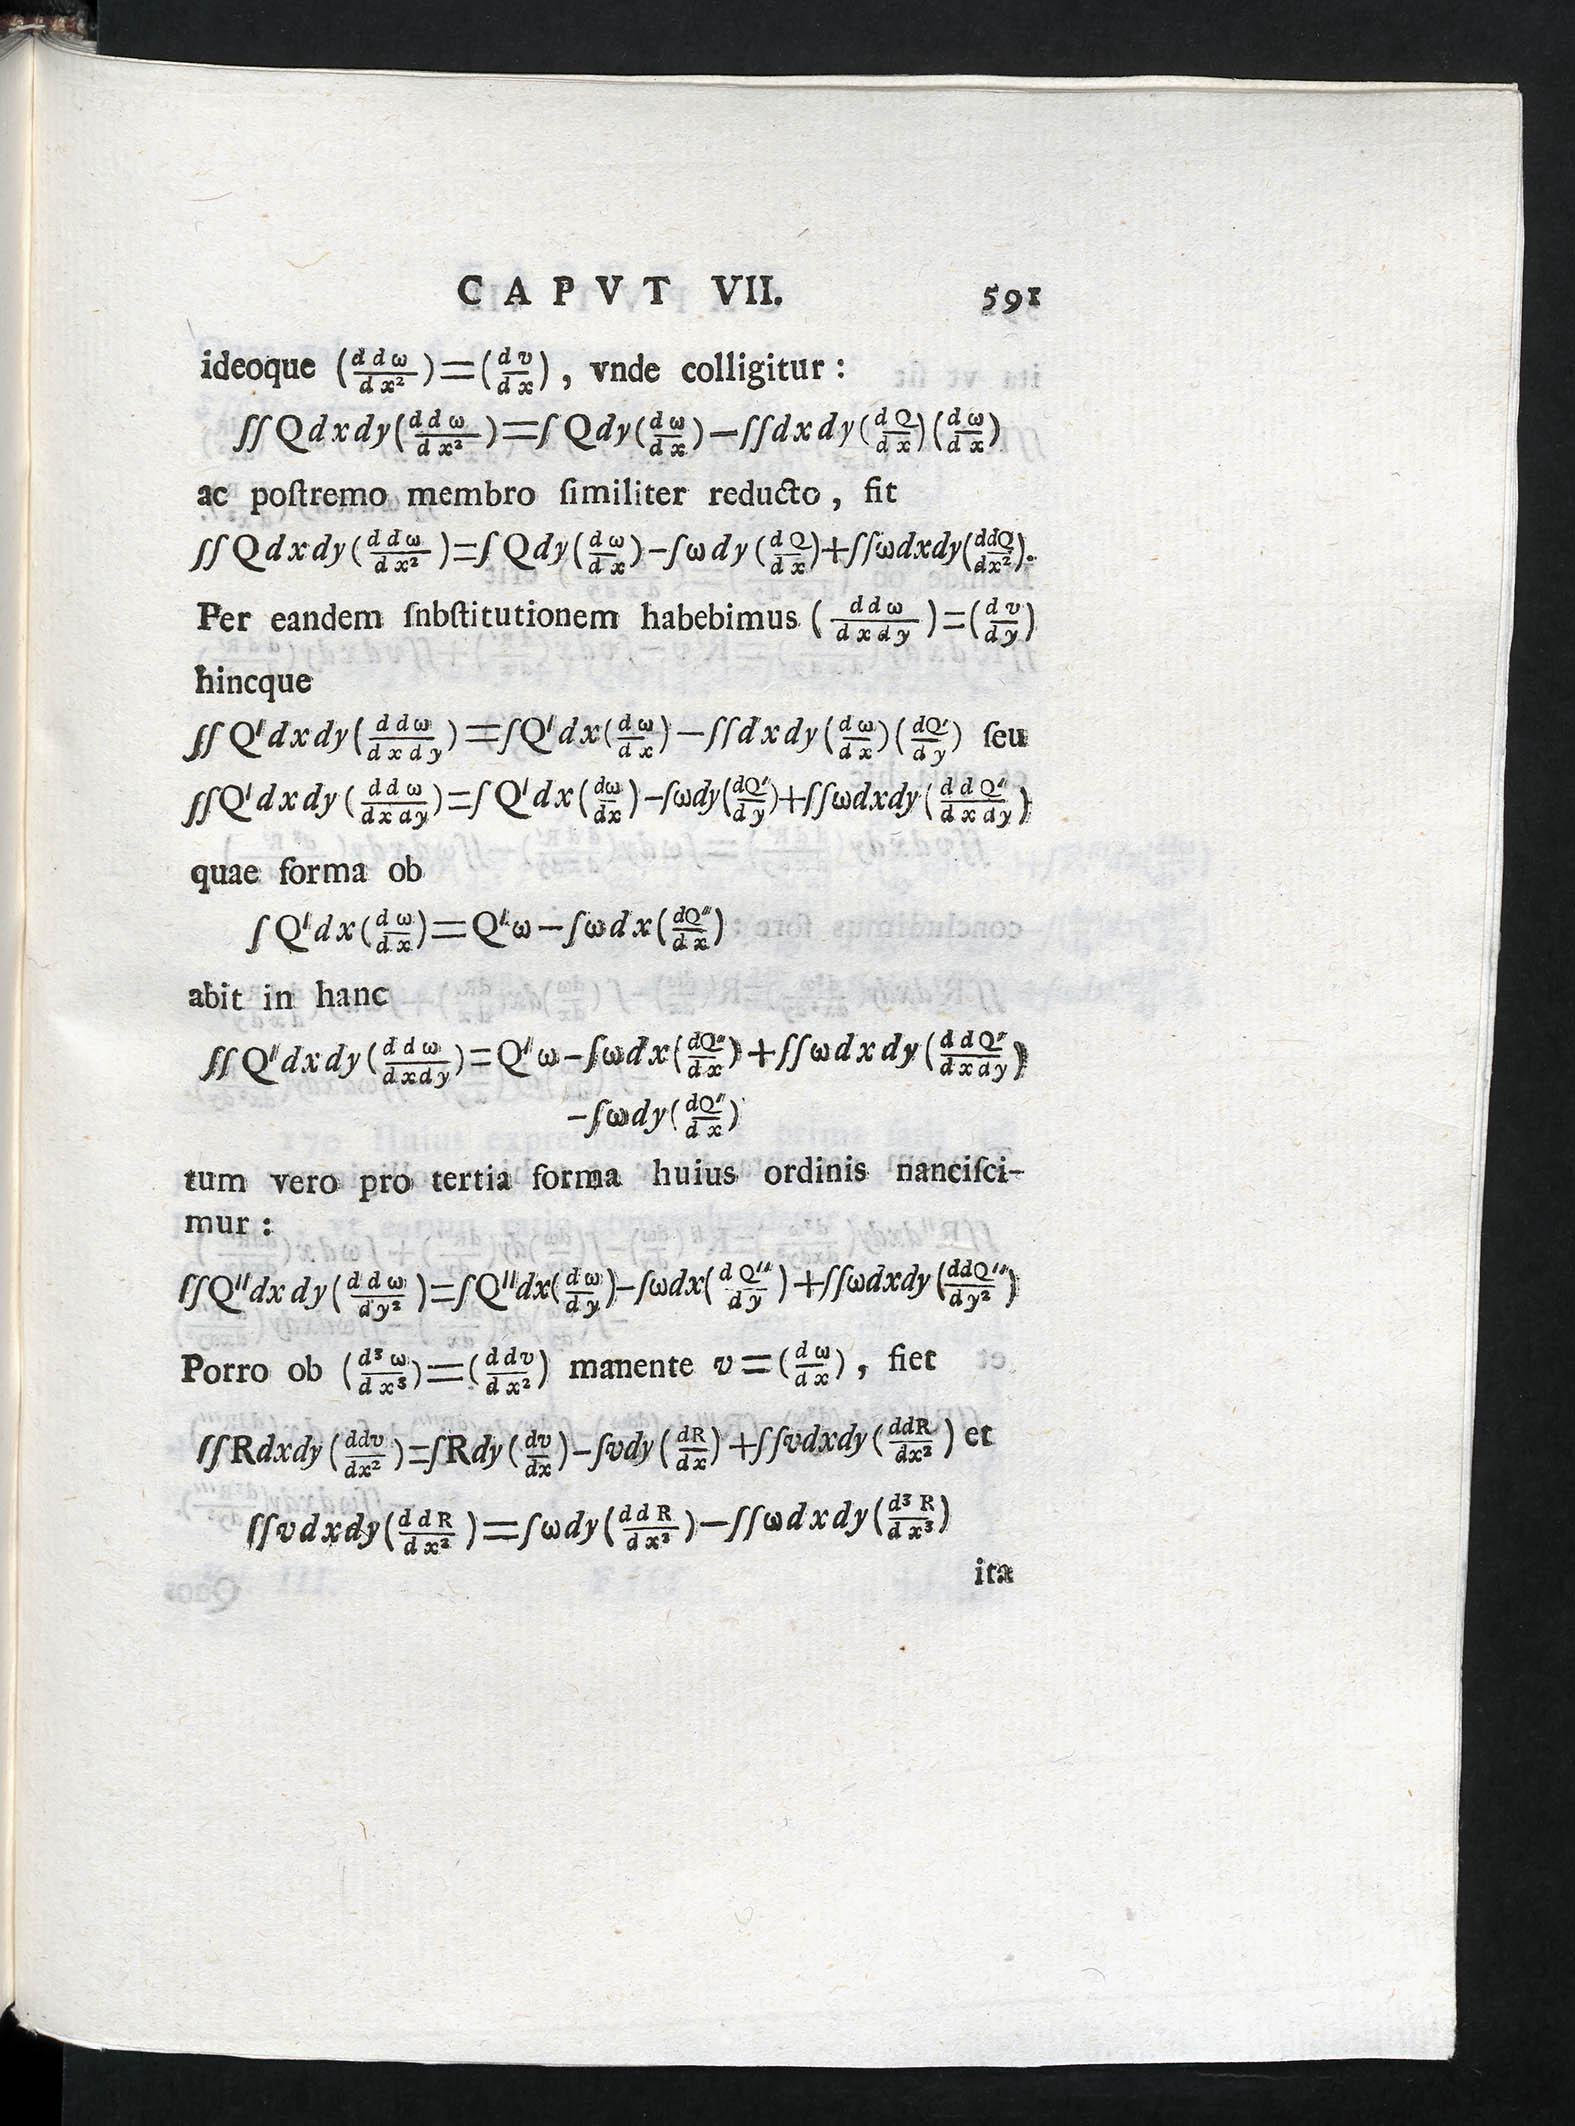 CAPVT VII. 591
ideoque (ddω/dx²)=(dv/dx), vnde colligitur:
∫∫Qdxdy(ddω/dx²)=∫Qdy(dω/dx)−∫∫dxdy(dQ/dx)(dω/dx)
ac poſtremo membro ſimiliter reducto, fit
∫∫Qdxdy(ddω/dx²)=∫Qdy(dω/dx)−∫ωdy(dQ/dx)+∫∫ωdxdy(ddQ/dx²).
Per eandem ſnbſtitutionem habebimus (ddω/dxdy)=(dv/dy)
hincque
∫∫Q'dxdy(ddω/dxdy)=∫Q'dx(dω/dx)−∫∫dxdy(dω/dx)(dQ'/dy) ſeu
∫∫Q'dxdy(ddω/dxdy)=∫Q'dx(dω/dx)−∫ωdy(dQ'/dy)+∫∫ωdxdy(ddQ'/dxdy)
quae forma ob
∫Q'dx(dω/dx)=Q'ω−∫ωdx(dQ'/dx)
abit in hanc
∫∫Q'dxdy(ddω/dxdy)=Q'ω−∫ωdx(dQ'/dx)+∫∫ωdxdy(ddQ'/dxdy)
−∫ωdy(dQ'/dx)
tum vero pro tertia forma huius ordinis nanciſci-
mur:
∫∫Q''dxdy(ddω/dy²)=∫Q''dx(dω/dy)−∫ωdx(dQ''/dy)+∫∫ωdxdy(ddQ''/dy²)
Porro ob (d³ω/dx³)=(ddv/dx²) manente v=(dω/dx), fiet
∫∫Rdxdy(ddv/dx²)=∫Rdy(dv/dx)−∫vdy(dR/dx)+∫∫vdxdy(ddR/dx²) et
∫∫vdxdy(ddR/dx²)=∫ωdy(ddR/dx²)−∫∫ωdxdy(d³R/dx³)
ita